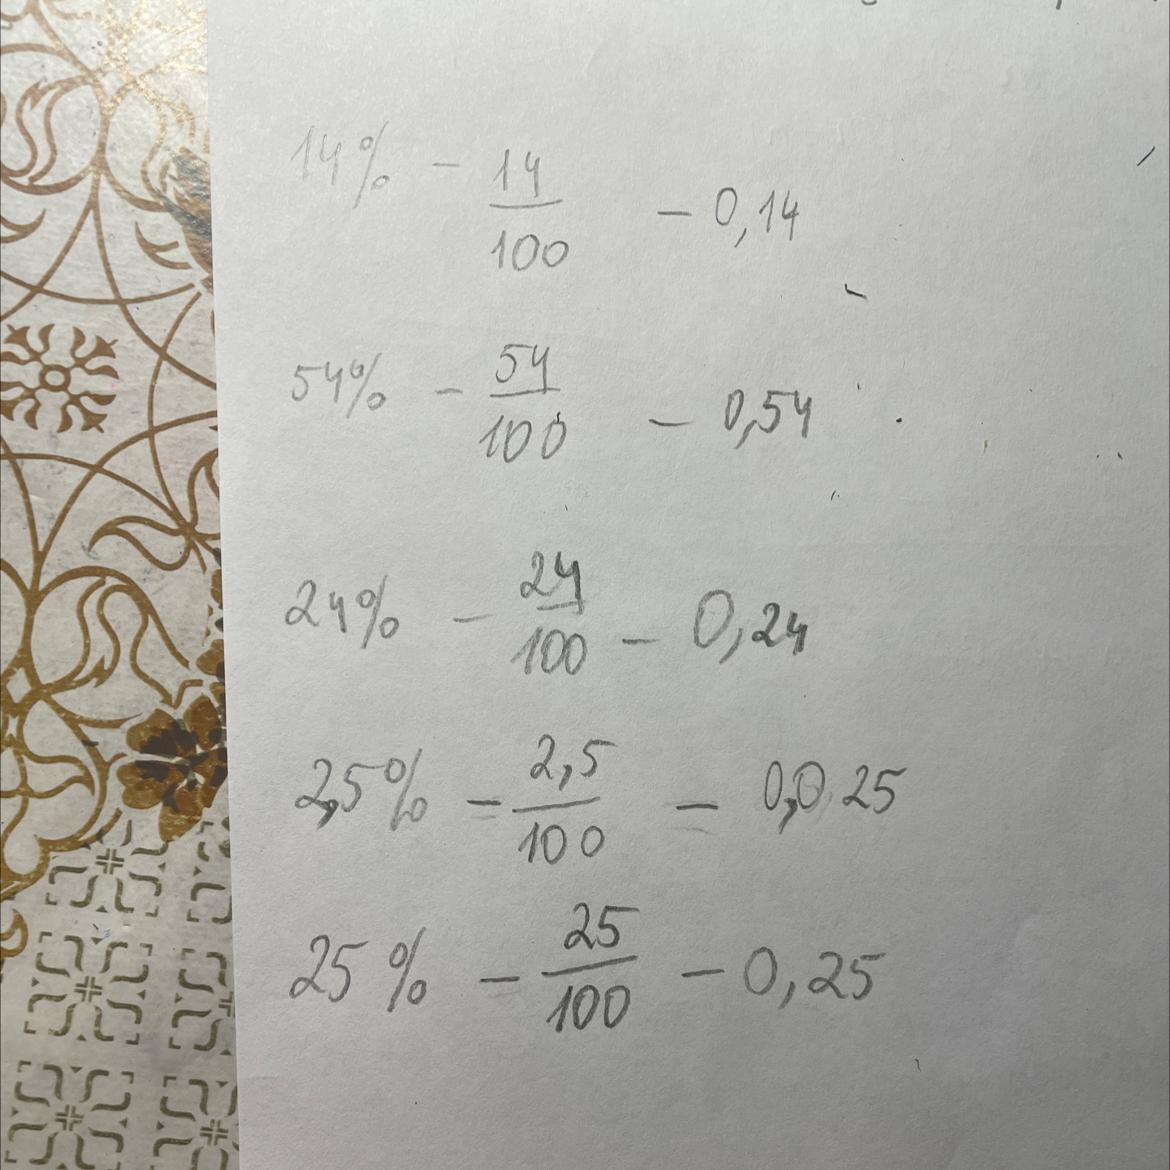 14% - 14/100 - 0,14
54% - 54/100 - 0,54
24% - 24/100 - 0,24
2,5% - 2,5/100 - 0,025
25% - 25/100 - 0,25